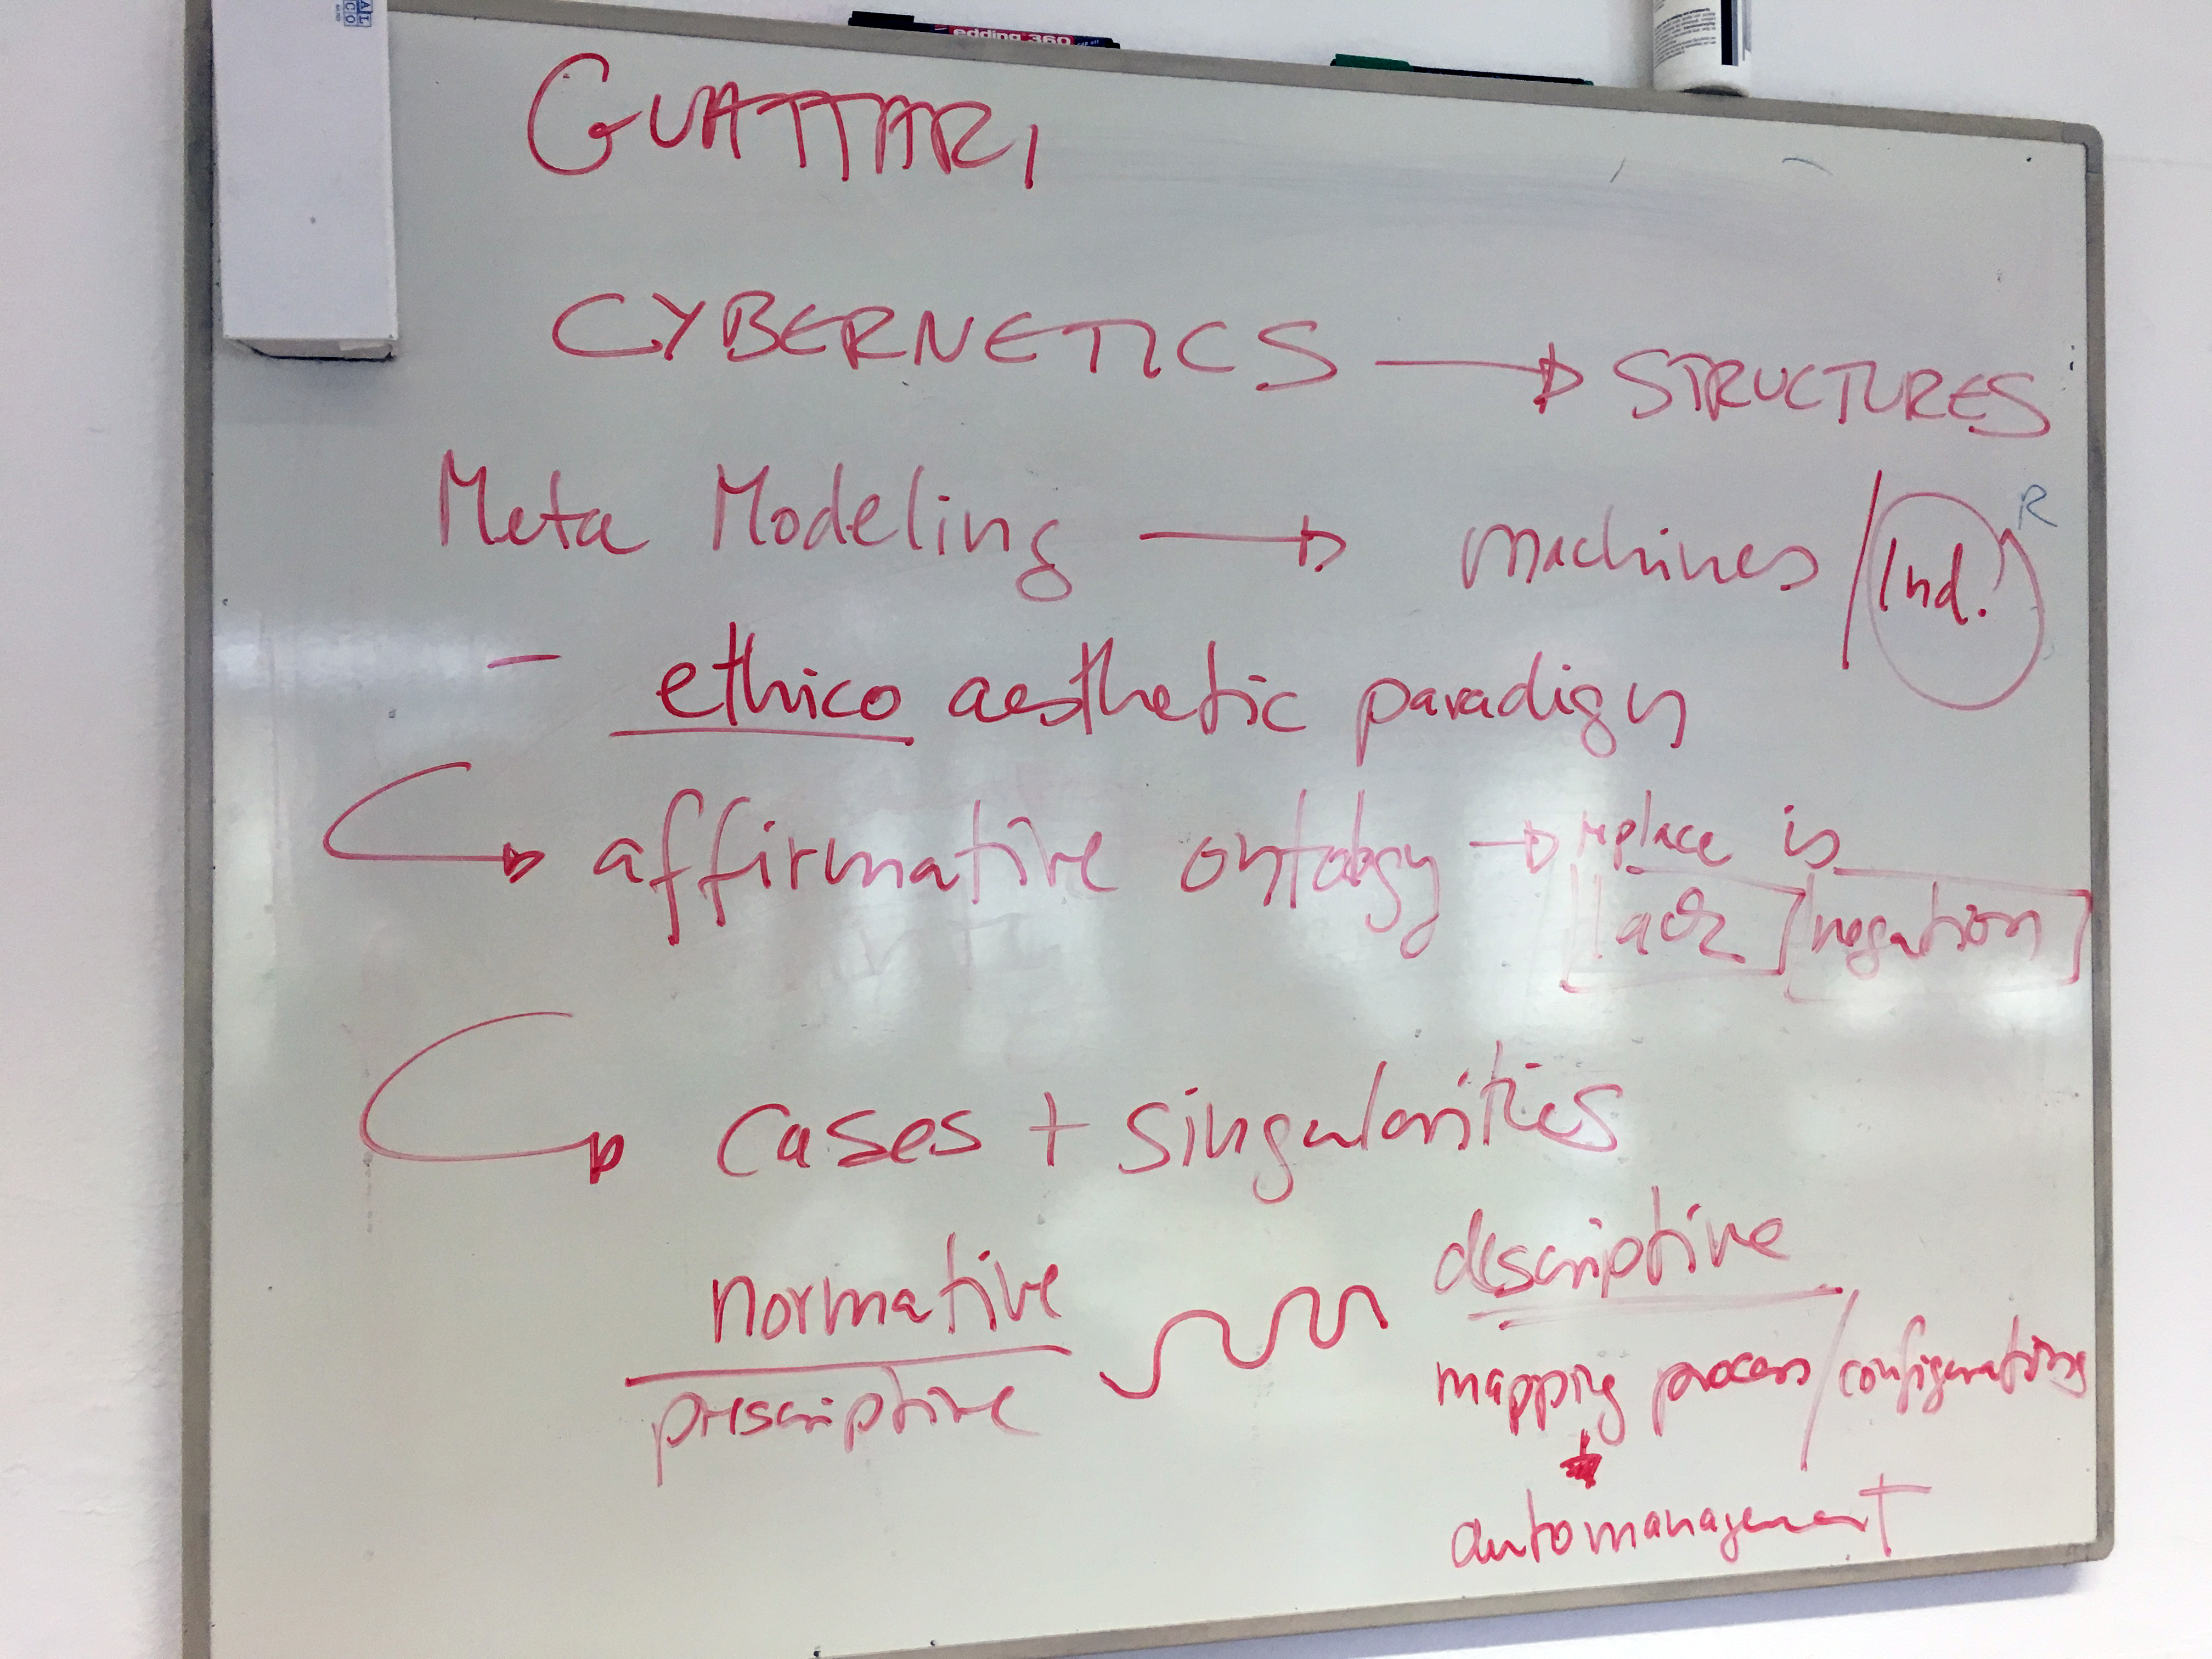 edding 360
GUATTARI
CYBERNETICS → STRUCTURES
Meta Modeling → machines / Ind.
R
- ethico aesthetic paradigm
→ affirmative ontology → replace is
lack / negation
→ cases + singularities
normative
prescriptive
descriptive
mapping process / configurations
automanagement